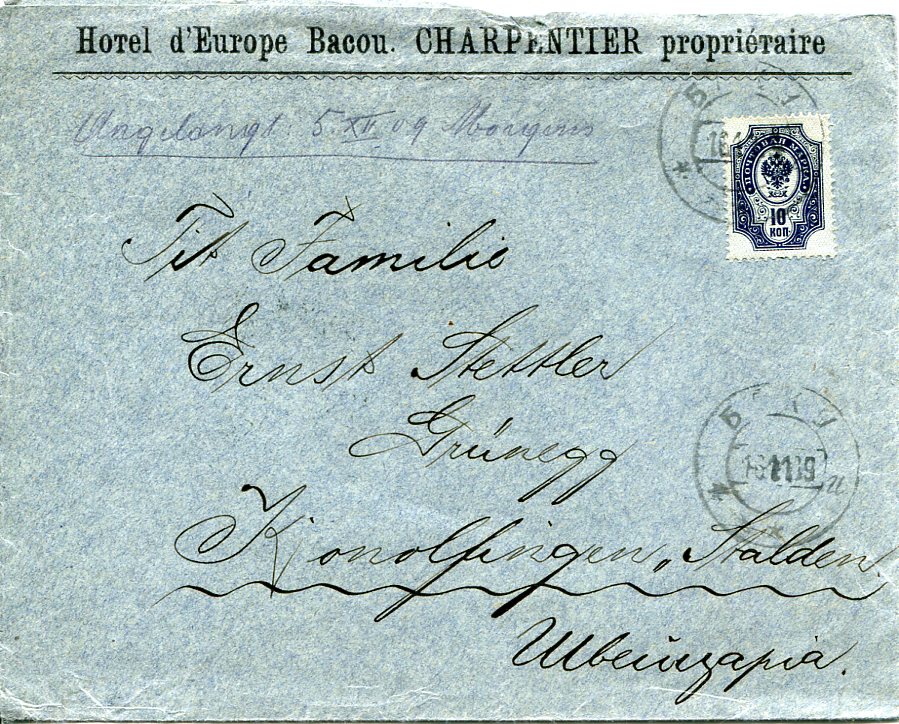 Hotel d'Europe Bacou. CHARPENTIER propriétaire
Angelangt 5. XII 09 Morgens
ПОЧТОВАЯ МАРКА
10
КОП.
Tit Familie
Ernst Stettler
Grünegg
Konolfingen, Stalden.
Швейцарія.